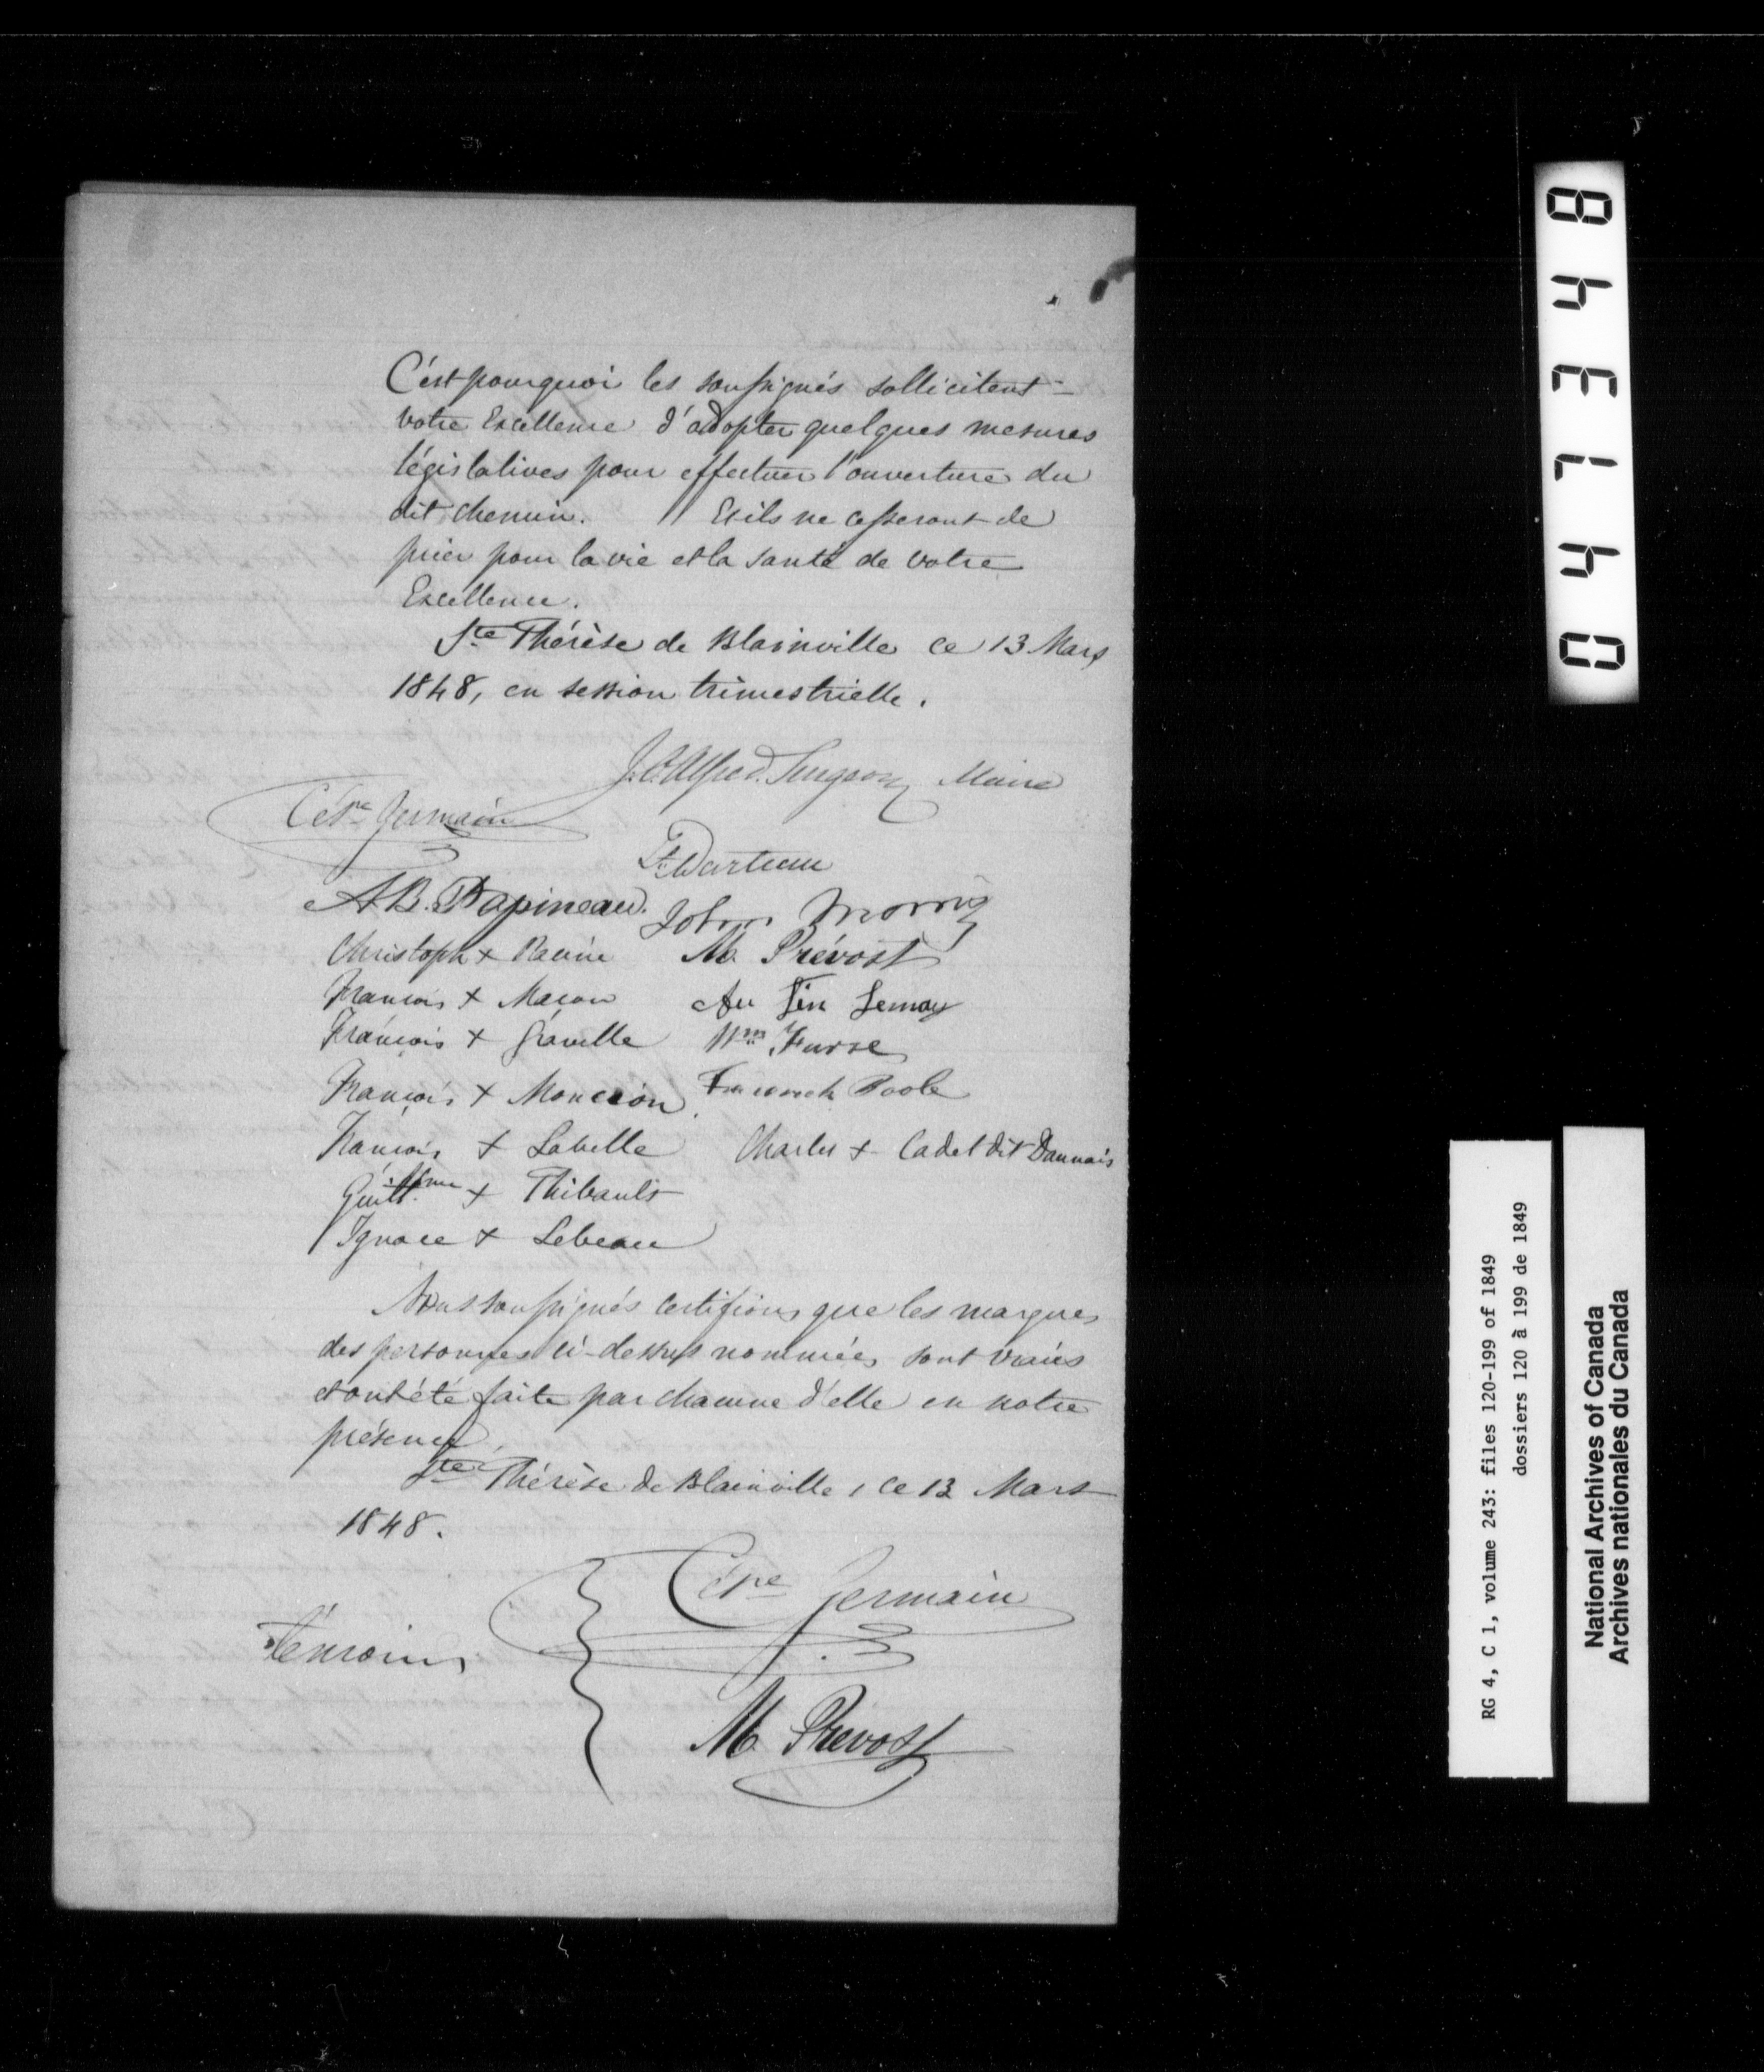 C'est pourquoi les soussignés sollicitent
votre Excellence d'adopter quelques mesures
législatives pour effectuer l'ouverture du
dit chemin. Et ils ne cesseront de
prier pour la vie et la santé de votre
Excellence.
Ste Thérèse de Blainville ce 13 Mars
1848, en session trimestrielle.
Alfred Maire
Césre Germain
A B. Papineau. John Morris
Christoph + Racine M. Prévost
François + Maçon Lemay
François + Graville Wm Furse
François + Moncion Poole
François + Labelle Charles + Cadet dit Daunais
Guillaume + Thibault
Ignace + Lebeau
Nous soussignés certifions que les marques
des personnes ci-dessus nommées sont vraies
et ont été faite par chacune d'elle en notre
présence
Ste Thérèse de Blainville, ce 13 Mars
1848.
Césre Germain
Témoins
M. Prevost
047348
RG 4, C 1, volume 243: files 120-199 of 1849
dossiers 120 à 199 de 1849
National Archives of Canada
Archives nationales du Canada